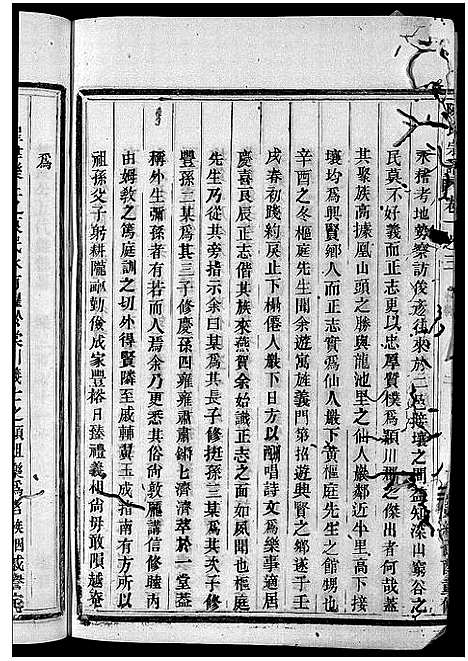 氶捨考地勢察訪俊彥往來於二邑接壤之間益知深山窮谷之
民莫不好義而正志更以忠厚質樸爲潁川卌之傑出者何哉
其聚族高據凰山頭之勝與龍池里之仙人巖鄰近半里于高
壤均爲興賢鄉三十一都正志實爲仙人巖下黄樞庭先生之館甥也
辛酉之冬樞庭先生聞余遊寓旌義門第招遊興賢之鄉遂于壬
戌春初踐約戾止下榻僊人巖下日方以酬唱詩文爲樂事適居
慶喜良辰正志偕其族來燕賀余始識正志之面如夙聞也樞庭
先生乃從其旁指示余曰某爲其長子修挺孫三某爲其次子修
豐孫二某爲其三子修慶孫四雍雍肅肅鏘匕濟濟萃於一堂蓋
稱外生彌孫者有若而人焉余乃更悉其俗尚敦龐講信修睦內
由姆教之篤庭訓之功外得賢隣至戚輔翼玉成指南有方所以
祖孫父子躬耕隴畔勤儉成家豐裕日臻禮義相尚毋敢隕越龕
爲